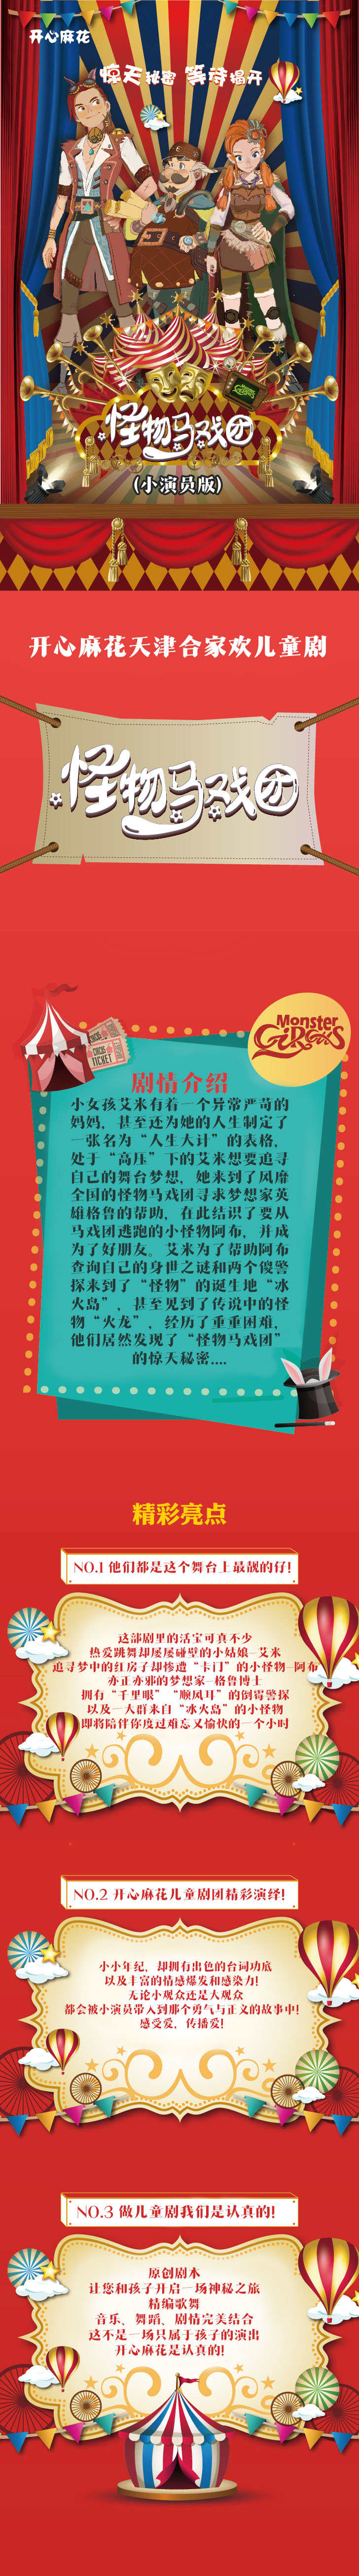 开心麻花
惊天秘密 等待揭开
怪物马戏团
(小演员版)
开心麻花天津合家欢儿童剧
怪物马戏团
Monster
CIRCUS
CIRCUS
TICKET
剧情介绍
小女孩艾米有着一个异常严苛的
妈妈，甚至还为她的人生制定了
一张名为“人生大计”的表格，
处于“高压”下的艾米想要追寻
自己的舞台梦想，她来到了风靡
全国的怪物马戏团寻求梦想家英
雄格鲁的帮助，在此结识了要从
马戏团逃跑的小怪物阿布，并成
为了好朋友。艾米为了帮助阿布
查询自己的身世之谜和两个傻警
探来到了“怪物”的诞生地“冰
火岛”，甚至见到了传说中的怪
物“火龙”，经历了重重困难，
他们居然发现了“怪物马戏团”
的惊天秘密....
精彩亮点
NO.1 他们都是这个舞台上最靓的仔!
这部剧里的活宝可真不少
热爱跳舞却屡屡碰壁的小姑娘–艾米
追寻梦中的红房子却惨遭“卡门”的小怪物–阿布
亦正亦邪的梦想家–格鲁博士
拥有“千里眼”“顺风耳”的倒霉警探
以及一大群来自“冰火岛”的小怪物
即将陪伴你度过难忘又愉快的一个小时
NO.2 开心麻花儿童剧团精彩演绎!
小小年纪，却拥有出色的台词功底
以及丰富的情感爆发和感染力!
无论小观众还是大观众
都会被小演员带入到那个勇气与正义的故事中!
感受爱，传播爱!
NO.3 做儿童剧我们是认真的!
原创剧本
让您和孩子开启一场神秘之旅
精编歌舞
音乐、舞蹈、剧情完美结合
这不是一场只属于孩子的演出
开心麻花是认真的!